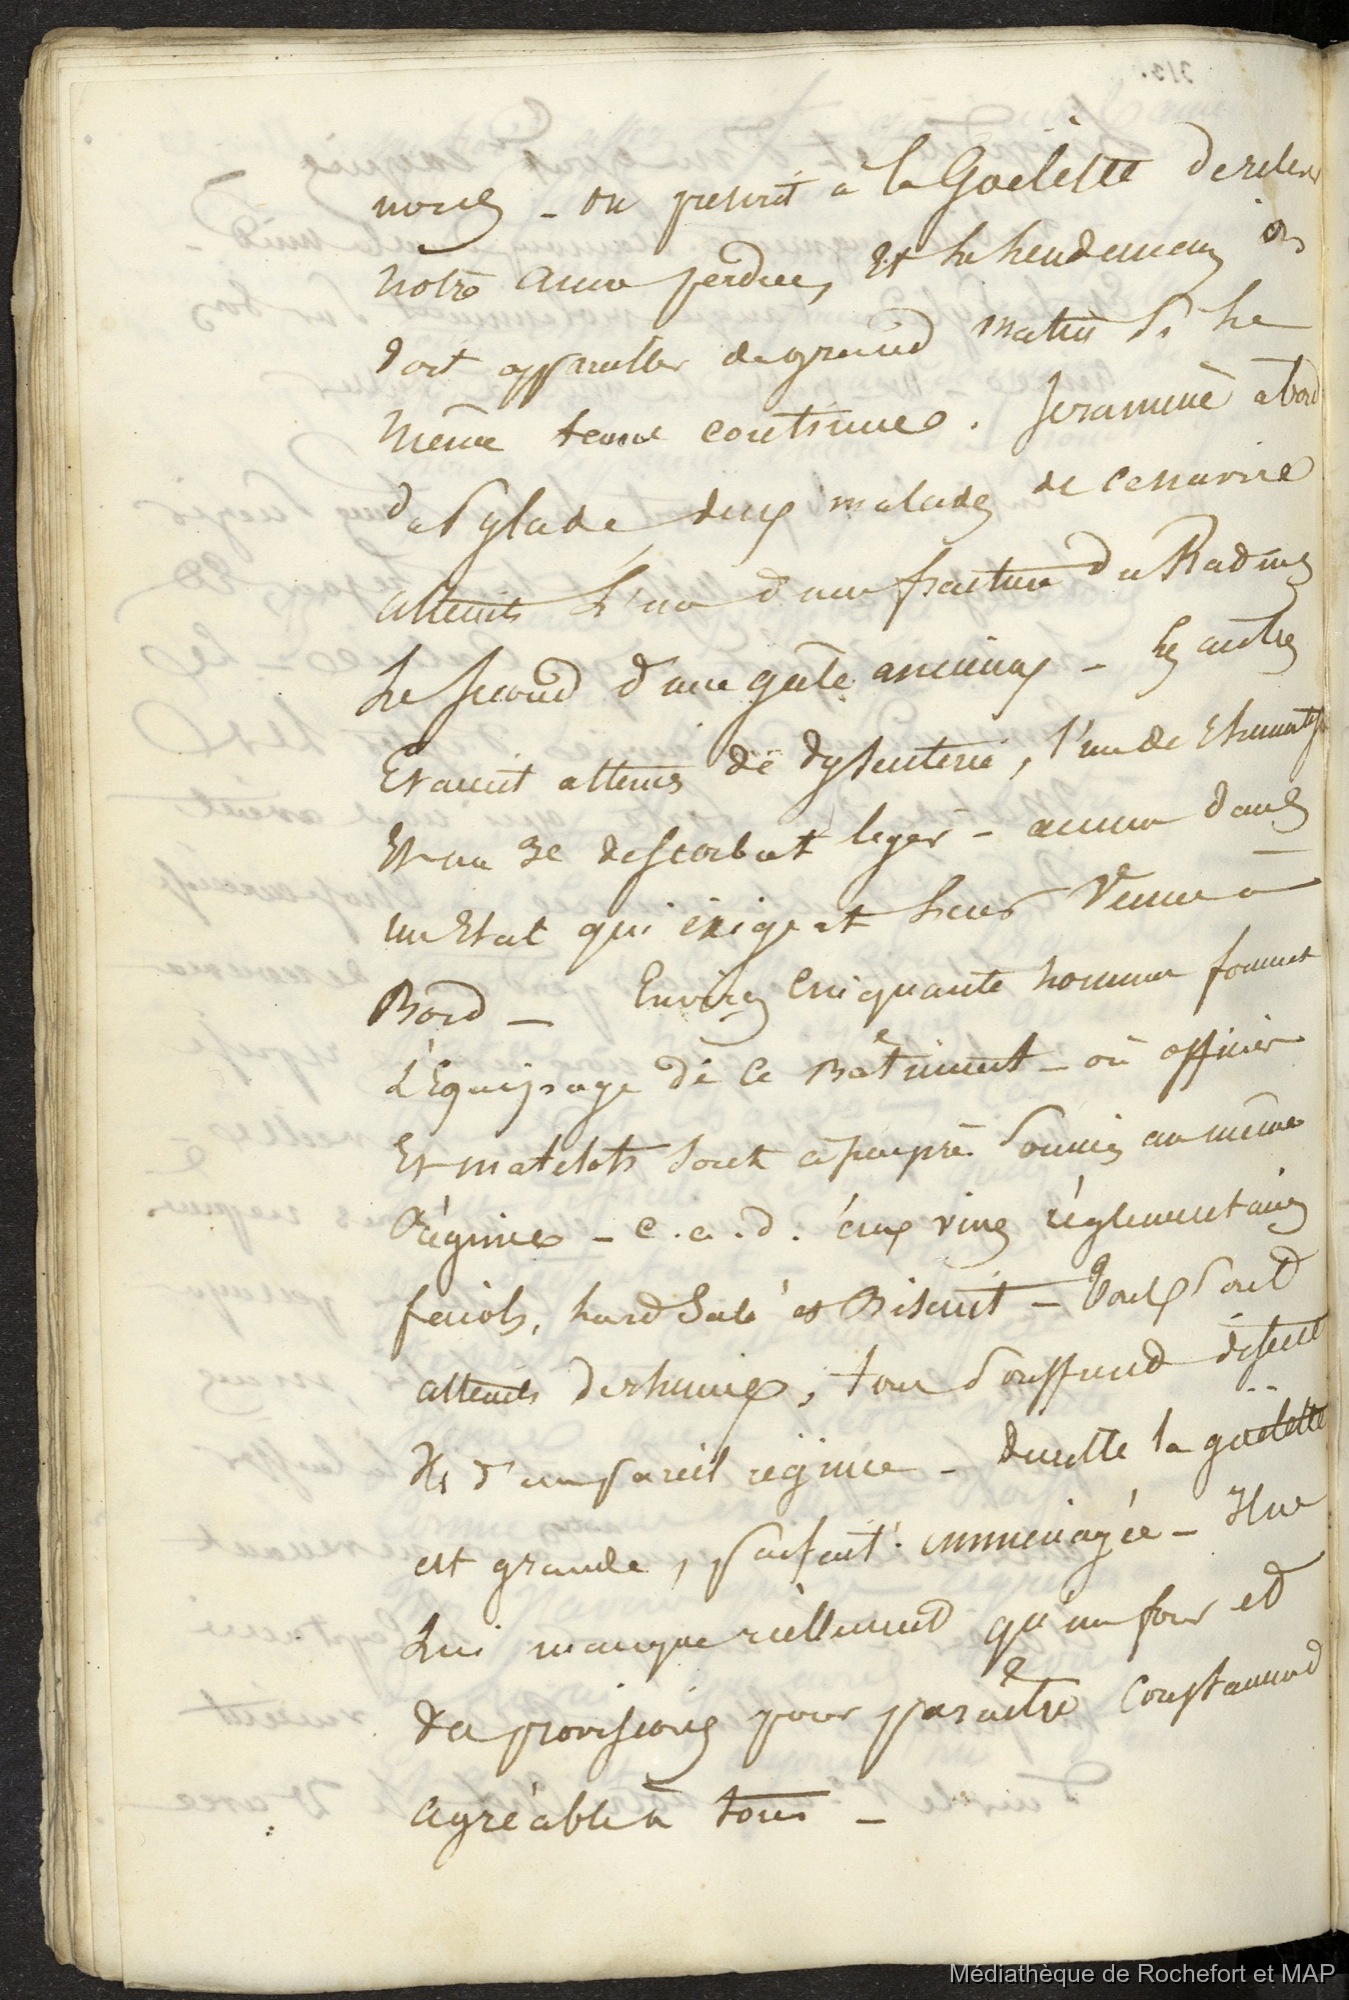 nous - on prescrit à la Goëlette de relever
notre ancre perdue, Et le lendemain on
doit appareiller de grand matin Si le
même tems continue. Je ramène à bord
du Pylade deux malades de ce navire
atteints L'un d'une fracture du Radius
Le second d'une gâle ancienne - les autres
Etaient atteins de dysenterie, l'un de
Et un 3e de scorbut léger - aucun dans
un Etat qui exigeat leur Venue à
Bord - Environ Cinquante hommes forment
L'Equipage de ce Bâtiment - où officiers
Et matelots sont à peu près soumis au même
Régime - c. a. d. aux vins réglementaires
feriols, lard Salé et Biscuit - tous sont
atteints de rhumes, tous souffrent disent
Ils d'un pareil régime - Du reste la goelette
est grande, parfait. emménagée - Il ne
Lui manque réellement qu'un four et
des provisions pour paraître Constammt
agréable à tous -
Médiathèque de Rochefort et MAP